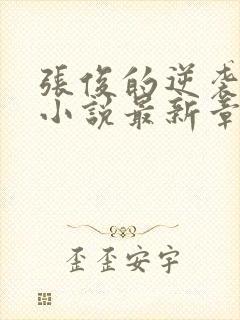 張俊的逆袭
小說最新章
歪歪安宇